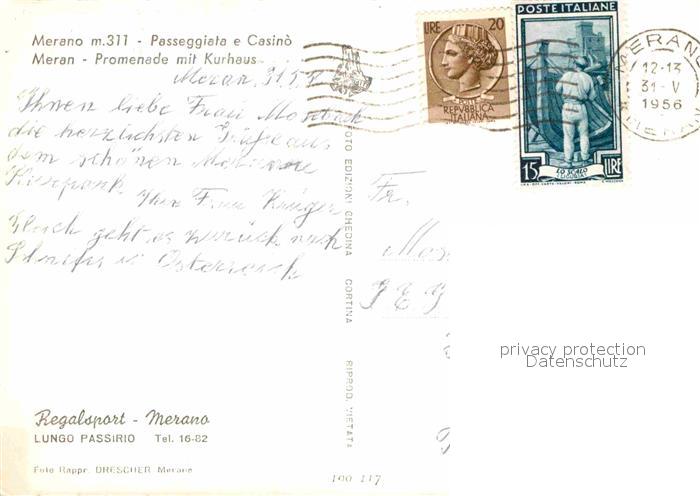 Merano m.311 - Passeggiata e Casinò
Meran - Promenade mit Kurhaus
Meran, 31.5.
Ihnen liebe Frau
die herzlichsten Grüße aus
dem schönen Meraner
Kurpark. Ihre Frau Krüger
Gleich geht es zurück nach
Österreich
FOTO EDIZIONI GHEDINA CORTINA RIPROD. VIETATA
LIRE 20
REPVBBLICA
ITALIANA
POSTE ITALIANE
15 LIRE
LO SCALO
(LIGURIA)
MERANO
12-13
31-V
1956
Fr.
privacy protection
Datenschutz
Regalsport - Merano
LUNGO PASSIRIO Tel. 16-82
Foto Rappr. DRESCHER Merano
190 117